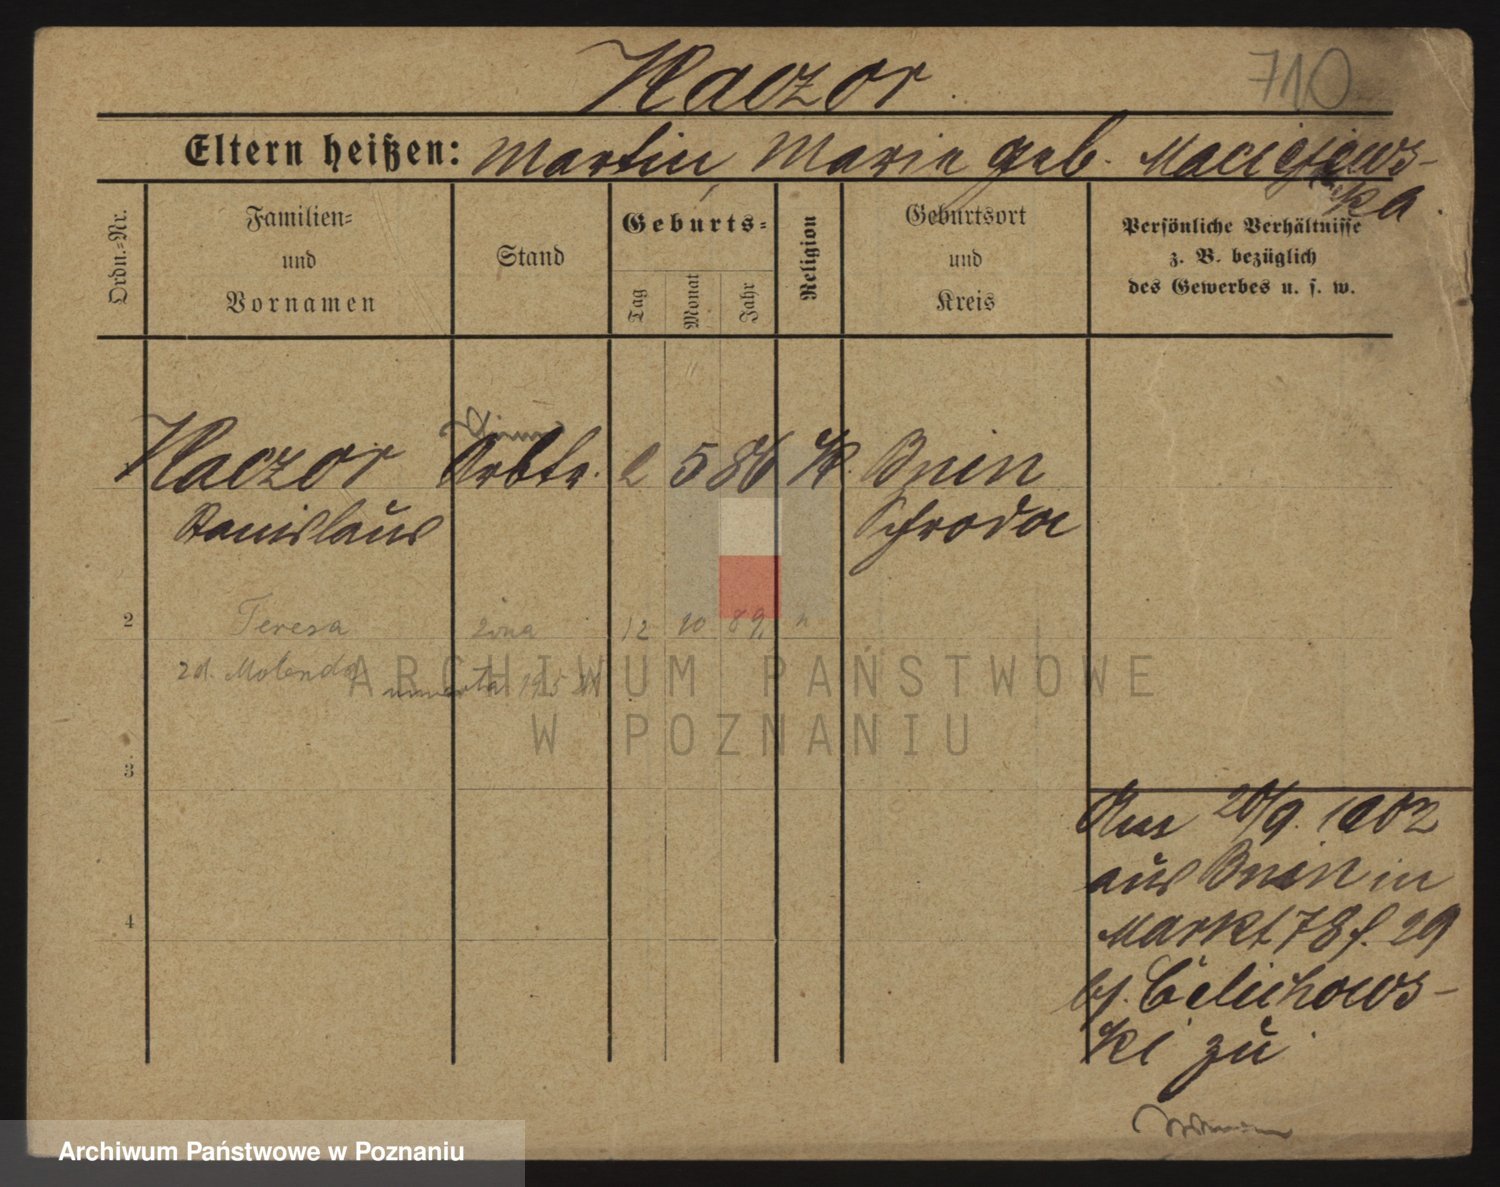 Kaczor
710
Eltern heißen: Martin Marie geb. Maciejews-
ka.
Ordn.-Nr.
Familien-
und
Vornamen
Stand
Geburts-
Tag
Monat
Jahr
Religion
Geburtsort
und
Kreis
Persönliche Verhältnisse
z. B. bezüglich
des Gewerbes u. s. w.
Kaczor Arbtr. 2 5 86 K. Bnin
Stanislaus Schroda
2 Teresa żona 12 10 89 "
zd. Molenda
umarła
ARCHIWUM PAŃSTWOWE
W POZNANIU
3
Am 20/9. 1902
aus Bnin in
4
Markt 78 f. 29
bs. Celichows-
ki zu
Archiwum Państwowe w Poznaniu